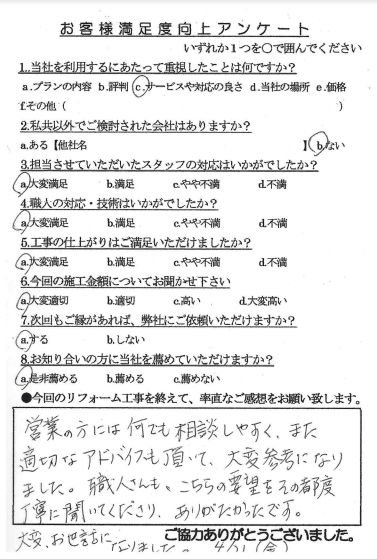 お客様満足度向上アンケート
いずれか1つを○で囲んでください
1.当社を利用するにあたって重視したことは何ですか?
a.プランの内容 b.評判 c.サービスや対応の良さ d.当社の場所 e.価格
f.その他( )
2.私共以外でご検討された会社はありますか?
a.ある【他社名 】 b.ない
3.担当させていただいたスタッフの対応はいかがでしたか?
a.大変満足 b.満足 c.やや不満 d.不満
4.職人の対応・技術はいかがでしたか?
a.大変満足 b.満足 c.やや不満 d.不満
5.工事の仕上がりはご満足いただけましたか?
a.大変満足 b.満足 c.やや不満 d.不満
6.今回の施工金額についてお聞かせ下さい
a.大変適切 b.適切 c.高い d.大変高い
7.次回もご縁があれば、弊社にご依頼いただけますか?
a.する b.しない
8.お知り合いの方に当社を薦めていただけますか?
a.是非薦める b.薦める c.薦めない
●今回のリフォーム工事を終えて、率直なご感想をお願い致します。
営業の方には何でも相談しやすく、また
適切なアドバイスも頂いて、大変参考になり
ました。職人さんも、こちらの要望をその都度
丁寧に聞いてくださり、ありがたかったです。
大変、お世話に
なりました。
ご協力ありがとうございました。